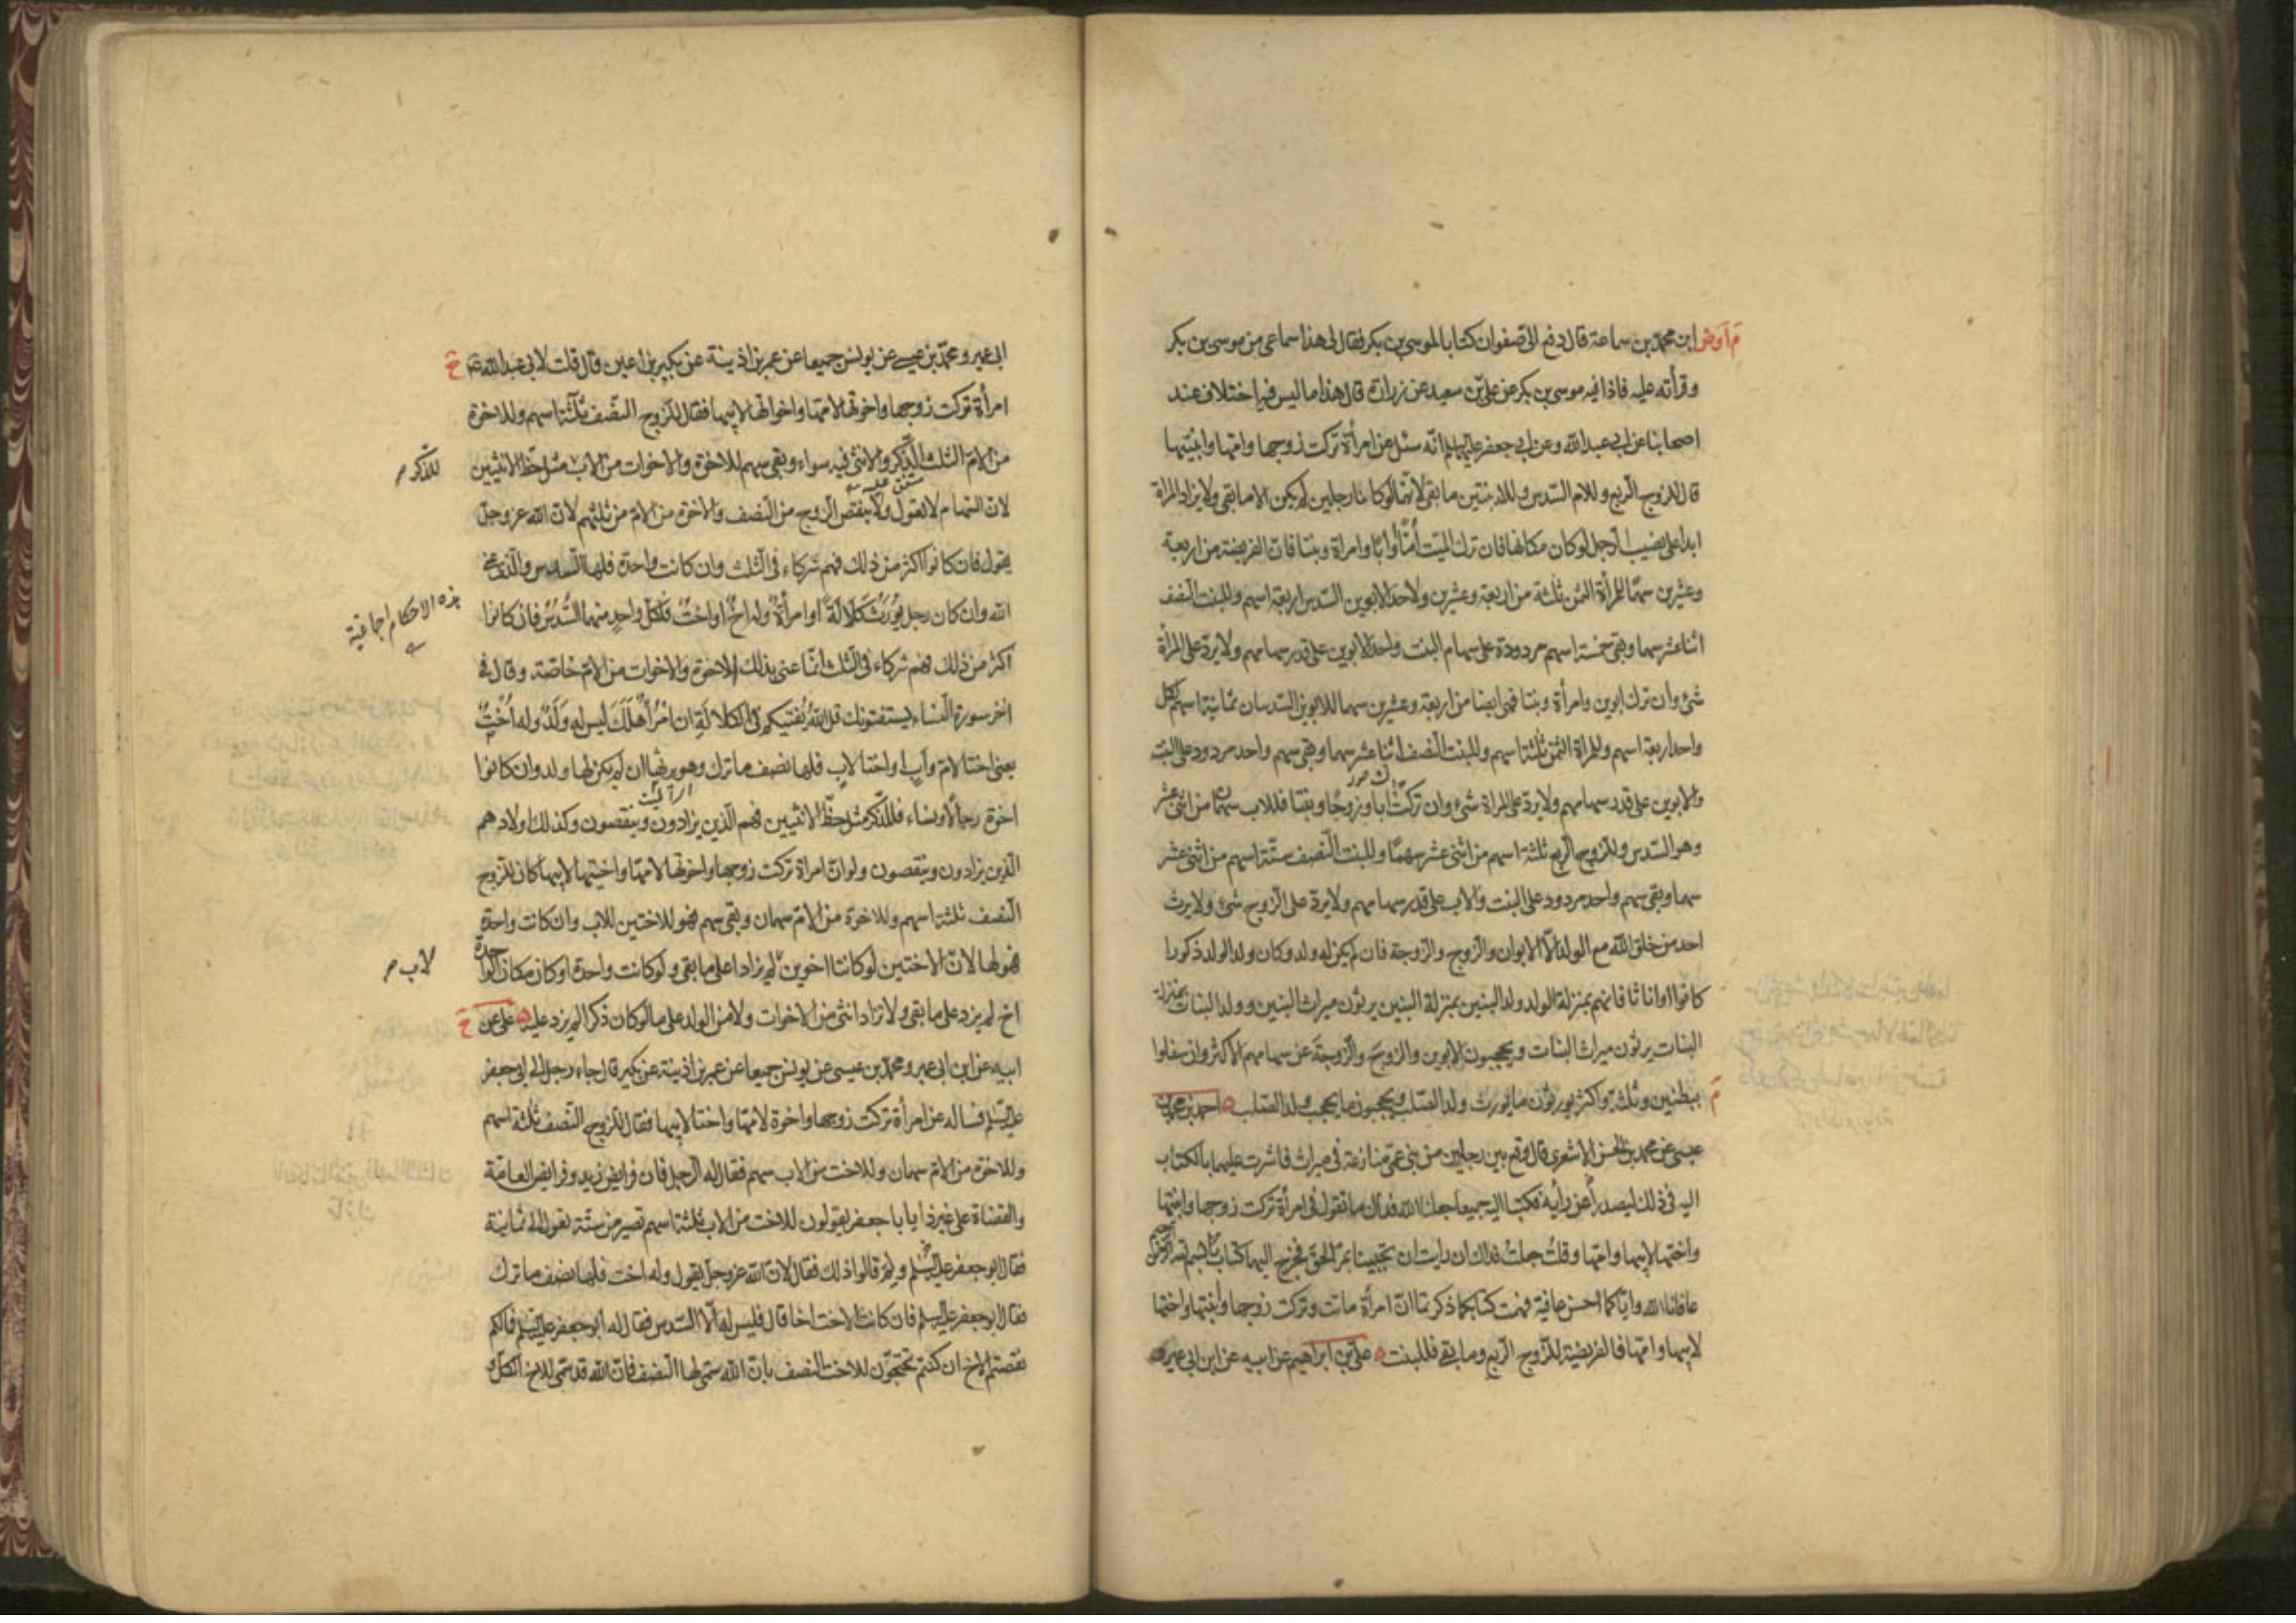 ابن محمد بن سماعة قال دفع الى صفوان كتابا لموسى بن بكر فقال لى هذا سماعى من موسى بن بكر
وقرأته عليه فاذا فيه موسى بن بكر عن على بن سعيد عن زرارة قال هذا ما ليس فيه اختلاف عند
اصحابنا عن ابى عبد الله وعن ابى جعفر عليهما السلم انه سئل عن امرأة تركت زوجها وامها وابنتيها
قال للزوج الربع وللام السدس وللابنتين ما بقى لانهما لو كانا رجلين لم يكن الا ما بقى ولا يزاد المراة
ابدا على نصيب الرجل لو كان مكانها فان ترك الميت أمّا أو ابًا وامراة وبنتا فان الفريضة من اربعة
وعشرين سهمًا للمرأة الثمن ثلثة من اربعة وعشرين ولاحد الابوين السدس اربعة اسهم وللبنت النصف
اثنا عشر سهما وبقى خمسة اسهم مردودة على سهام البنت واحد الابوين على قدر سهامهم ولا يرد على المرأة
شئ وان ترك ابوين وامرأة وبنتا فهى ايضا من اربعة وعشرين سهما للابوين السدسان ثمانية اسهم لكل
واحد اربعة اسهم وللمراة الثمن ثلثة اسهم وللبنت النصف اثنا عشر سهما وبقى سهم واحد مردود على البنت
والابوين على قدر سهامهم ولا يرد على المراة شئ وان تركت ابا وزوجًا وبنتا فللاب سهمان من اثنى عشر
وهو السدس وللزوج الربع ثلثة اسهم من اثنى عشر سهمًا وللبنت النصف ستة اسهم من اثنى عشر
سهما وبقى سهم واحد مردود على البنت والاب على قدر سهامهم ولا يرد على الزوج شئ ولا يرث
احد من خلق الله مع الولد الا الابوان والزوج والزوجة فان لم يكن له ولد وكان ولد الولد ذكورا
كانوا او اناثا فانهم بمنزلة الولد ولد البنين بمنزلة البنين يرثون ميراث البنين وولد البنات بمنزلة
البنات يرثون ميراث البنات ويحجبون الابوين والزوج والزوجة عن سهامهم الاكثر وان سفلوا
ببطنين وثلثة واكثر يورثون ما يورث ولد الصلب ويحجبون ما يحجب ولد الصلب احمد بن محمد بن
عيسى عن محمد بن الحسن الاشعرى قال وقع بين رجلين من بنى عمى منازعة فى ميراث فاشرت عليهما بالكتاب
اليه فى ذلك ليصدرا عن رأيه فكتبا اليه جميعا جعلنا الله فداك ما تقول فى امرأة تركت زوجها وابنتها
واختها لابيها وامها وقلت جعلت فداك ان رايت ان تجيبنا بمرّ الحق فخرج اليهما كتاب بسم الله الرحمن الرحيم
عافانا الله واياكما احسن عافية فهمت كتابكما ذكرتما ان امرأة ماتت وتركت زوجها وابنتها واختها
لابيها وامها فالفريضة للزوج الربع وما بقى فللبنت على بن ابراهيم عن ابيه عن ابن ابى عمير
ابى عمير ومحمد بن عيسى عن يونس جميعا عن عمر بن اذينة عن بكير بن اعين قال قلت لابى عبد الله
امرأة تركت زوجها واخوتها لامها واخواتها لابيها فقال للزوج النصف ثلثة اسهم وللاخوة
من الام الثلث الذكر والانثى فيه سواء وبقى سهم للاخوة والاخوات من الاب مثل حظ الانثيين
للذكر
لان السهام لا تعول ولا ينقص الزوج من النصف ولا الاخوة من الام من ثلثهم لان الله عز وجل
يقول فان كانوا اكثر من ذلك فهم شركاء فى الثلث وان كانت واحدة فلها السدس والذى عنى
الله وان كان رجل يورث كلالة او امرأة وله اخ او اخت فلكل واحد منهما السدس فان كانوا
هذه الاحكام اجماعية
اكثر من ذلك فهم شركاء فى الثلث انما عنى بذلك الاخوة والاخوات من الام خاصة وقال فى
اخر سورة النساء يستفتونك قل الله يفتيكم فى الكلالة ان امرأ هلك ليس له ولد وله اخت
يعنى اختا لام واب او اختا لاب فلها نصف ما ترك وهو يرثها ان لم يكن لها ولد وان كانوا
اخوة رجالا ونساء فللذكر مثل حظ الانثيين فهم الذين يزادون وينقصون وكذلك اولادهم
الذين يزادون وينقصون ولو ان امراة تركت زوجها واخوتها لامها واختيها لابيها كان للزوج
النصف ثلثة اسهم وللاخوة من الام سهمان وبقى سهم فهو للاختين للاب وان كانت واحدة
فهو لها لان الاختين لو كانتا اخوين لم يزادا على ما بقى ولو كانت واحدة او كان مكان الواحدة
لاب
اخ لم يزد على ما بقى ولا تزاد انثى من الاخوات ولا من الولد على ما لو كان ذكرا لم يزد عليه على عن
ابيه عن ابن ابى عمير ومحمد بن عيسى عن يونس جميعا عن عمر بن اذينة عن بكير قال جاء رجل الى ابى جعفر
عليه السلم فساله عن امرأة تركت زوجها واخوة لامها واختا لابيها فقال للزوج النصف ثلثة اسهم
وللاخوة من الام سهمان وللاخت من الاب سهم فقال له الرجل فان فرايض زيد وفرايض العامة
والقضاة على غير ذا يا با جعفر يقولون للاخت من الاب ثلثة اسهم تصير من ستة تعول الى ثمانية
فقال ابو جعفر عليه السلم ولم قالوا ذلك فقال لان الله عز وجل يقول وله اخت فلها نصف ما ترك
فقال ابو جعفر عليه السلم فان كانت الاخت اخا قال فليس له الا السدس فقال له ابو جعفر عليه السلم فما لكم
نقصتم الاخ ان كنتم تحتجون للاخت النصف بان الله سمى لها النصف فان الله قد سمى للاخ الكل و